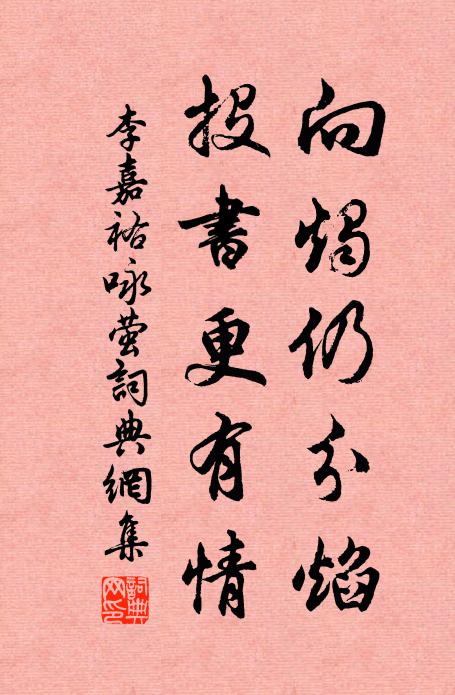 向燭仍分焰
投書更有情
李嘉祐咏螢詞典網集
詞典
网印